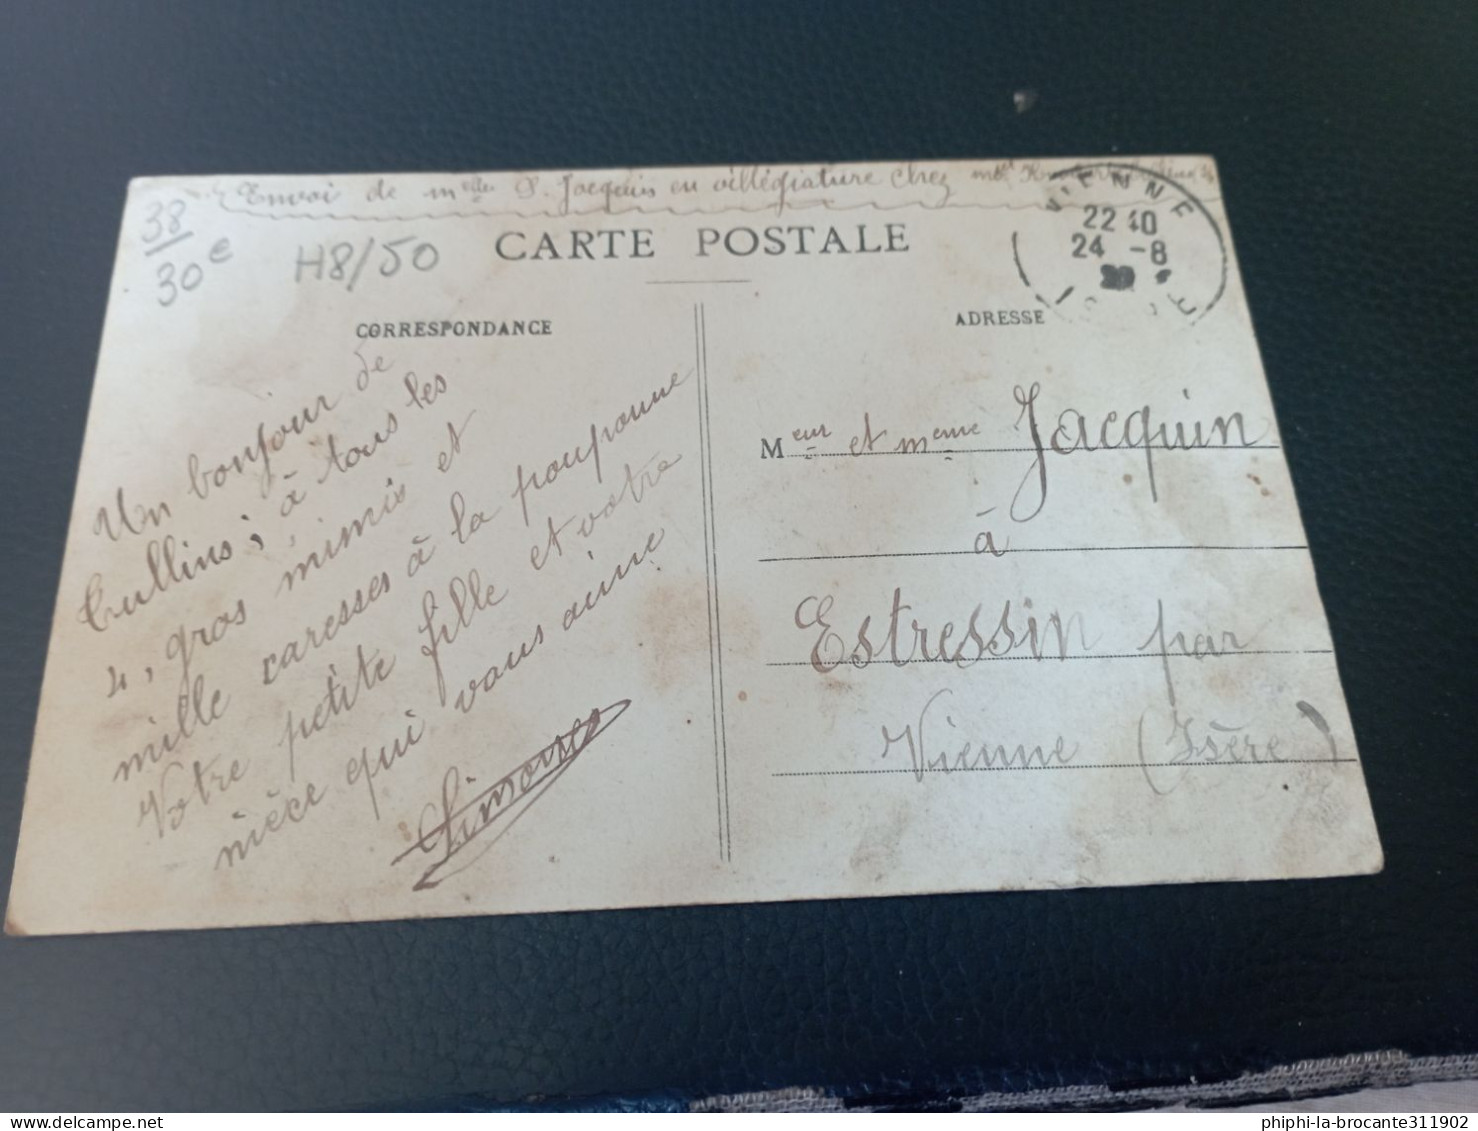 Envoi de melle S. Jacquin en villégiature chez
38
30e
H8/50
CARTE POSTALE
VIENNE
22 40
24 -8
CORRESPONDANCE
ADRESSE
Un bonjour de
Tullins, à tous les
4, gros mimis et
mille caresses à la pouponne
Votre petite fille et votre
nièce qui vous aime
Simone
Meur et meme Jacquin
à
Estressin par
Vienne (Isère)
phiphi-la-brocante311902